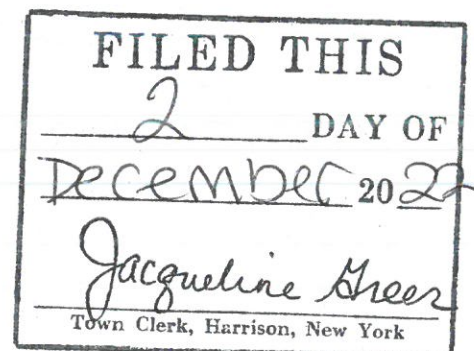 FILED THIS
2 DAY OF
December 2022
Jacqueline Greer
Town Clerk, Harrison, New York